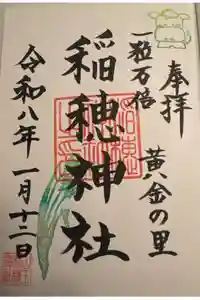 奉拝
黄金の里
一粒万倍
稲穂神社
令和八年一月十二日